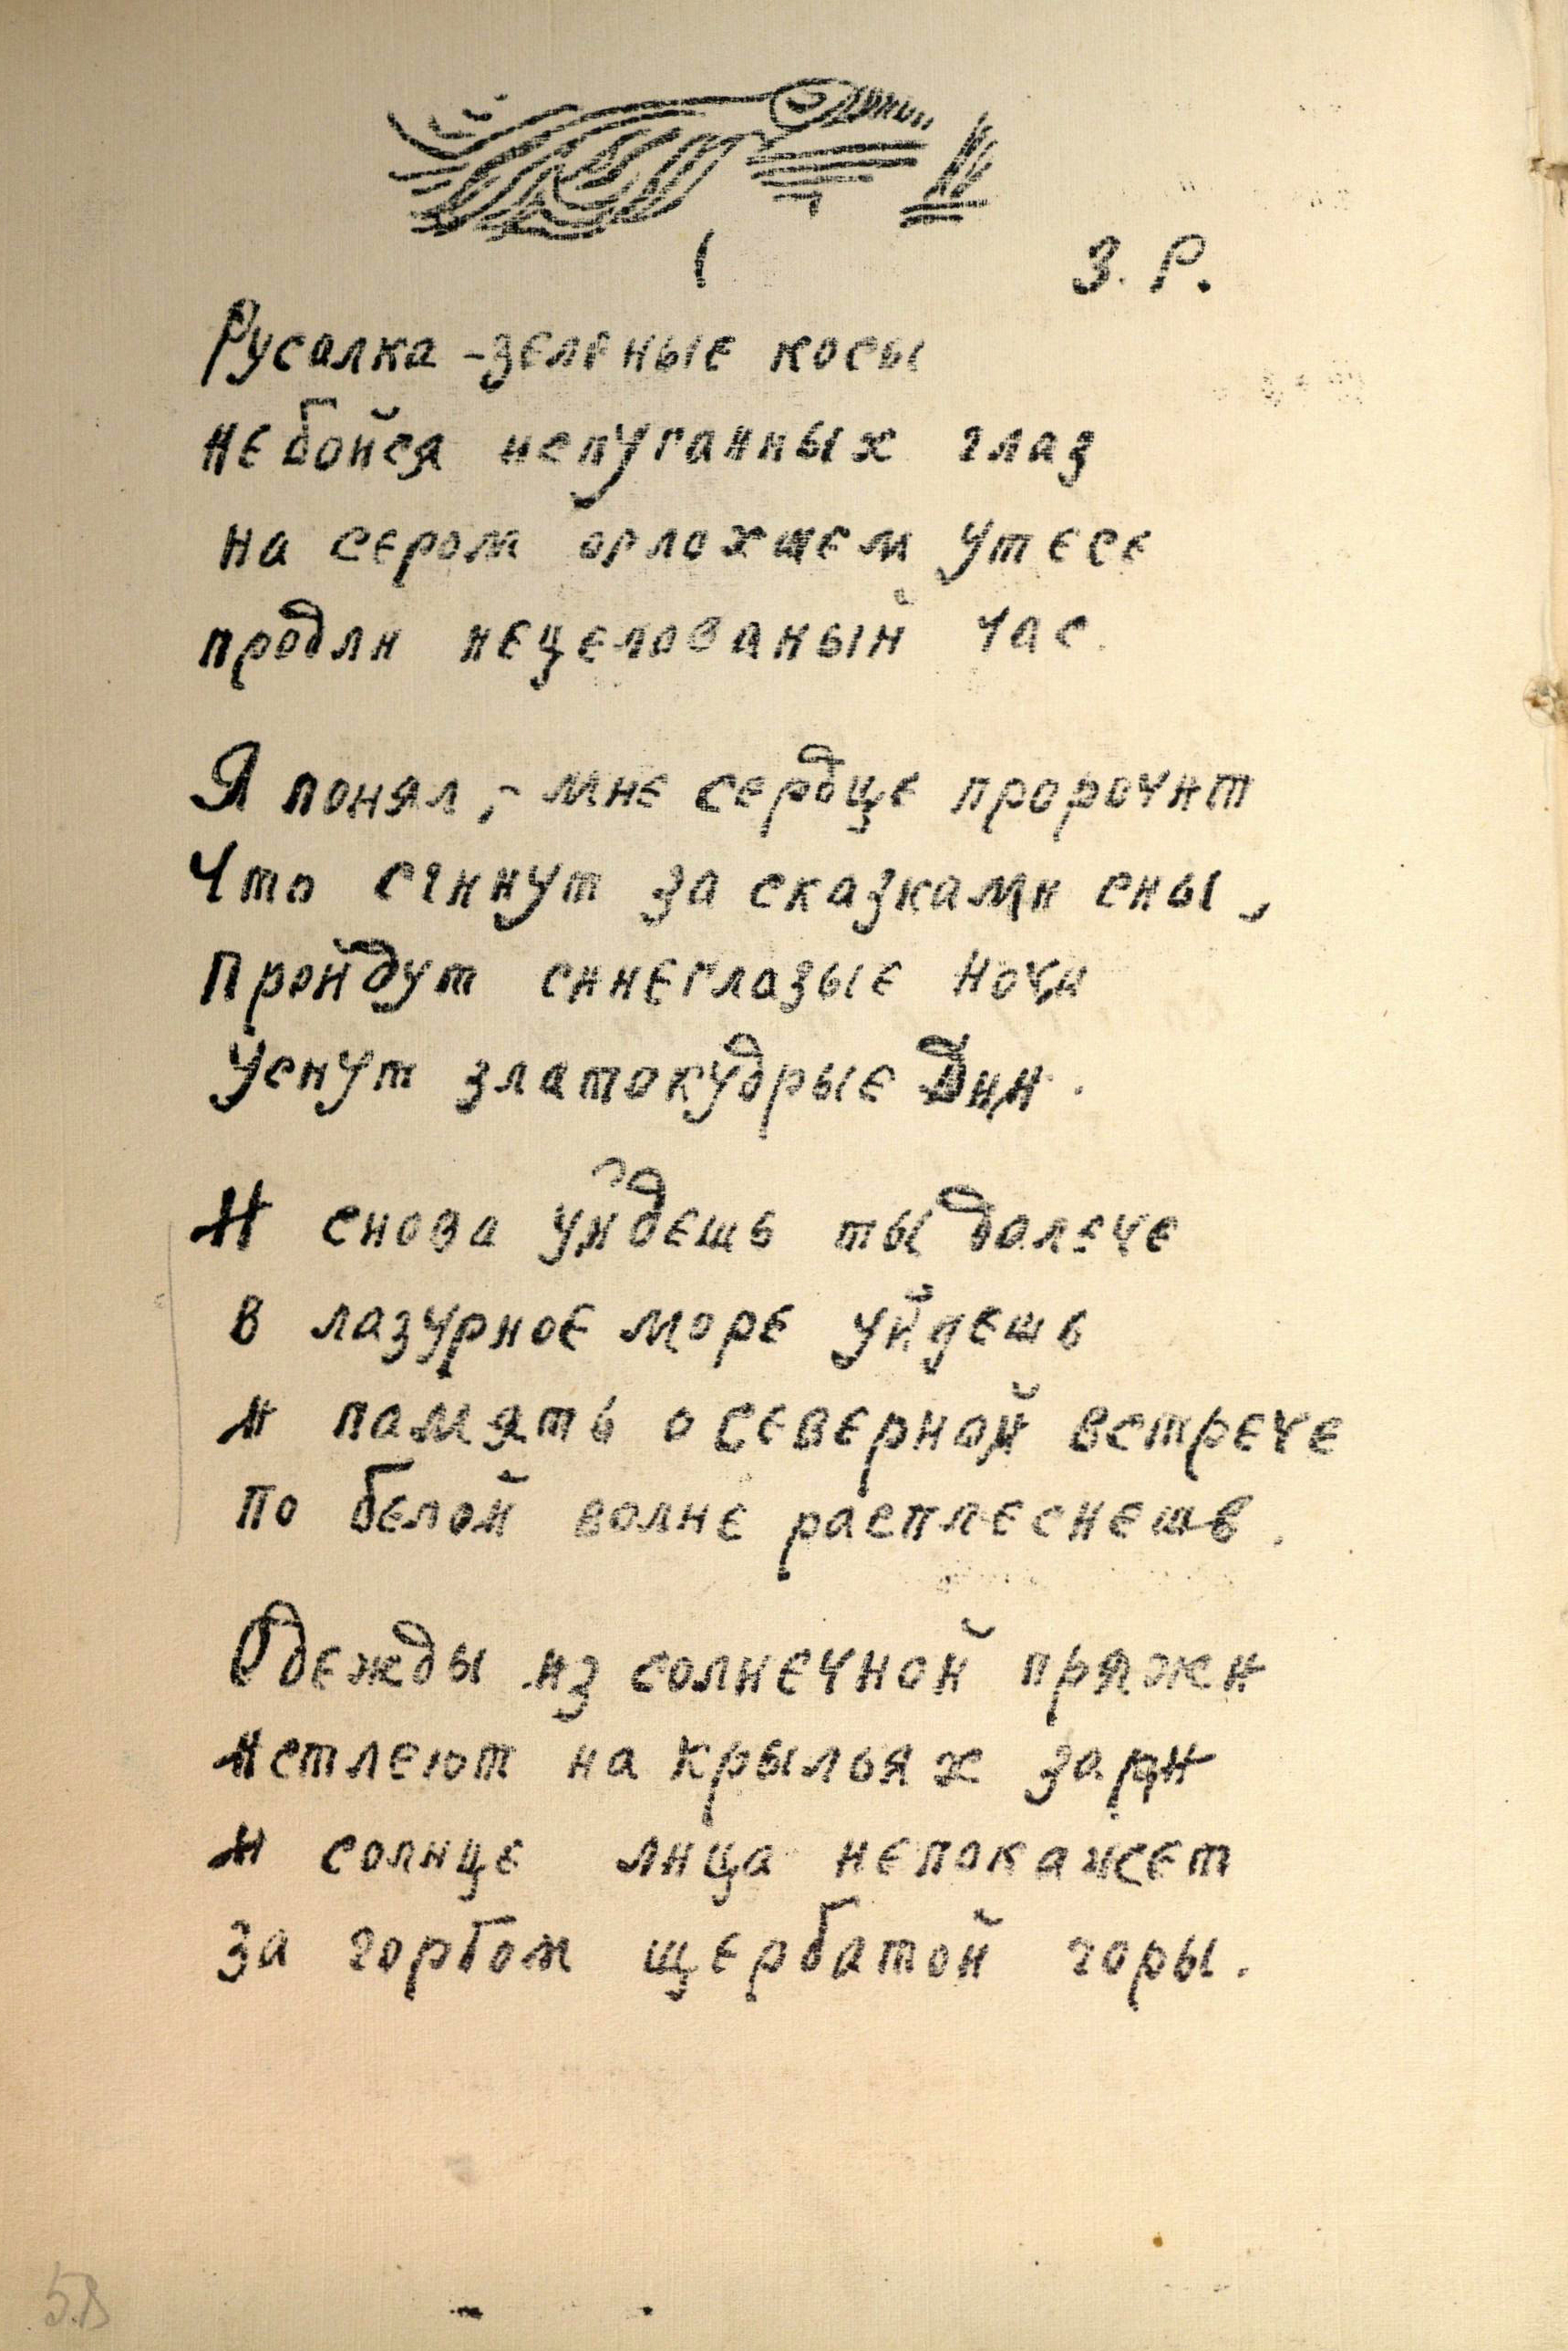 1
З. Р.
Русалка - зеленые косы
не бойся непуганных глаз
на сером оглохшем утесе
продли нецелованый час.
Я понял, - мне сердце пророчит
Что сгинут за сказками сны,
Пройдут синеглазые ночи
Уснут златокудрые Дни.
И снова уйдешь ты далече
в лазурное море уйдешь
и память о северной встрече
по белой волне расплеснешь.
Одежды из солнечной пряжи
истлеют на крыльях зари
и солнце лица непокажет
за горбом щербатой горы.